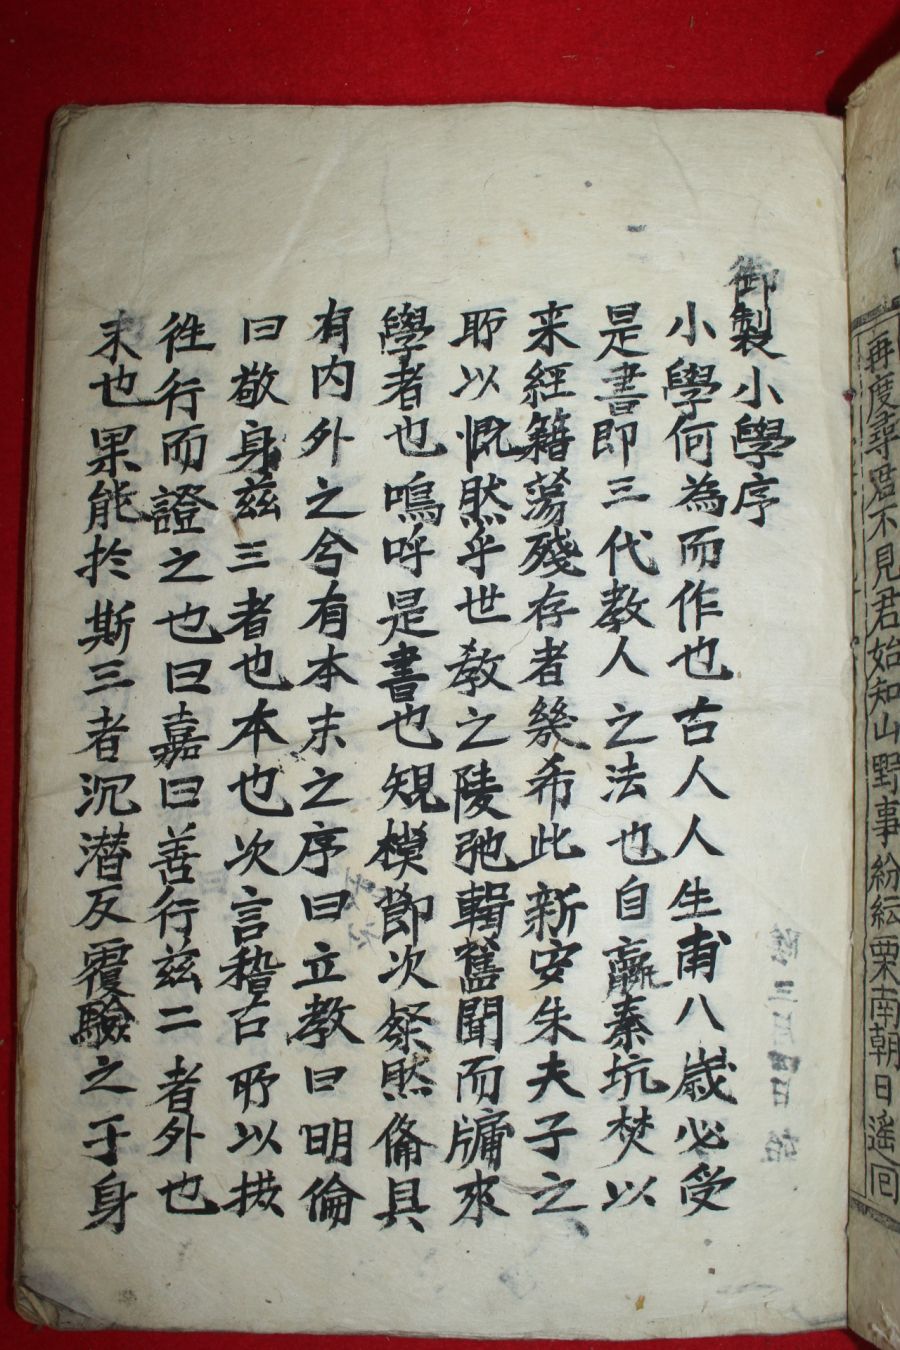 再度尋君不見君始知山野事紛紜栗南朝日遙囘
御製小學序
小學何為而作也古人人生甫八歲必受
是書即三代教人之法也自嬴秦坑焚以
来經籍蕩殘存者幾希此新安朱夫子之
所以慨然乎世教之陵弛輯舊聞而牖來
學者也嗚呼是書也規模節次粲然備具
有内外之兮有本末之序曰立教曰明倫
曰敬身茲三者也本也次言稽古所以摭
徃行而證之也曰嘉曰善行茲二者外也
末也果能於斯三者沉潜反覆驗之于身